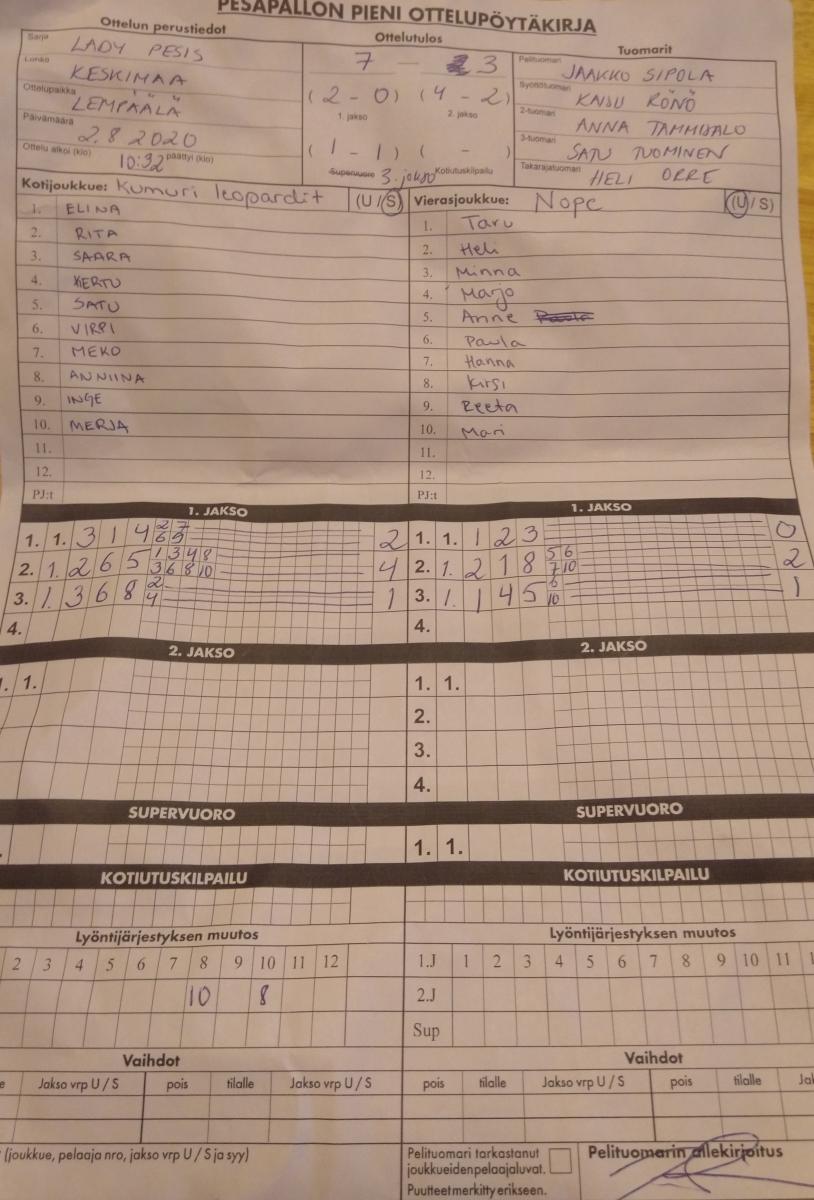 PESÄPALLON PIENI OTTELUPÖYTÄKIRJA
Ottelun perustiedot
Ottelutulos
Tuomarit
Sarja LADY PESIS
Lohko KESKIMAA
Ottelupaikka LEMPÄÄLÄ
Päivämäärä 2.8 2020
Ottelu alkoi (klo) 10:32 päättyi (klo)
7 – 3
(2 – 0) (4 – 2)
1. jakso 2. jakso
(1 – 1) ( – )
Supervuoro 3. jakso Kotiutuskilpailu
Pelituomari JAAKKO SIPOLA
Syöttötuomari KAISU RÖNÖ
2-tuomari ANNA
3-tuomari SATU TUOMINEN
Takarajatuomari HELI ORRE
Kotijoukkue: Kumuri leopardit (U / S)
1. ELINA
2. RITA
3. SAARA
4. KERTU
5. SATU
6. VIRPI
7. MEKO
8. ANNIINA
9. INGE
10. MERJA
11.
12.
PJ:t
Vierasjoukkue: Nope (U / S)
1. Taru
2. Heli
3. Minna
4. Marjo
5. Anne Paula
6. Paula
7. Hanna
8. Kirsi
9. Reeta
10. Mari
11.
12.
PJ:t
1. JAKSO
1. 1. 3 1 4 2 7 2
6 9
2. 1. 2 6 5 1 3 4 8 4
3 6 8 10
3. 1. 3 6 8 2 1
4
4.
1. JAKSO
1. 1. 1 2 3 0
2. 1. 2 1 8 5 6 2
7 10
3. 1. 1 4 5 6 1
10
4.
2. JAKSO
1. 1.
2. JAKSO
1. 1.
2.
3.
4.
SUPERVUORO
SUPERVUORO
1. 1.
KOTIUTUSKILPAILU
KOTIUTUSKILPAILU
Lyöntijärjestyksen muutos
2 3 4 5 6 7 8 9 10 11 12
10 8
Lyöntijärjestyksen muutos
1.J 1 2 3 4 5 6 7 8 9 10 11
2.J
Sup
Vaihdot
Jakso vrp U / S pois tilalle Jakso vrp U / S
Vaihdot
pois tilalle Jakso vrp U / S pois tilalle
(joukkue, pelaaja nro, jakso vrp U / S ja syy)
Pelituomari tarkastanut
joukkueiden pelaajaluvat.
Puutteet merkitty erikseen.
Pelituomarin allekirjoitus